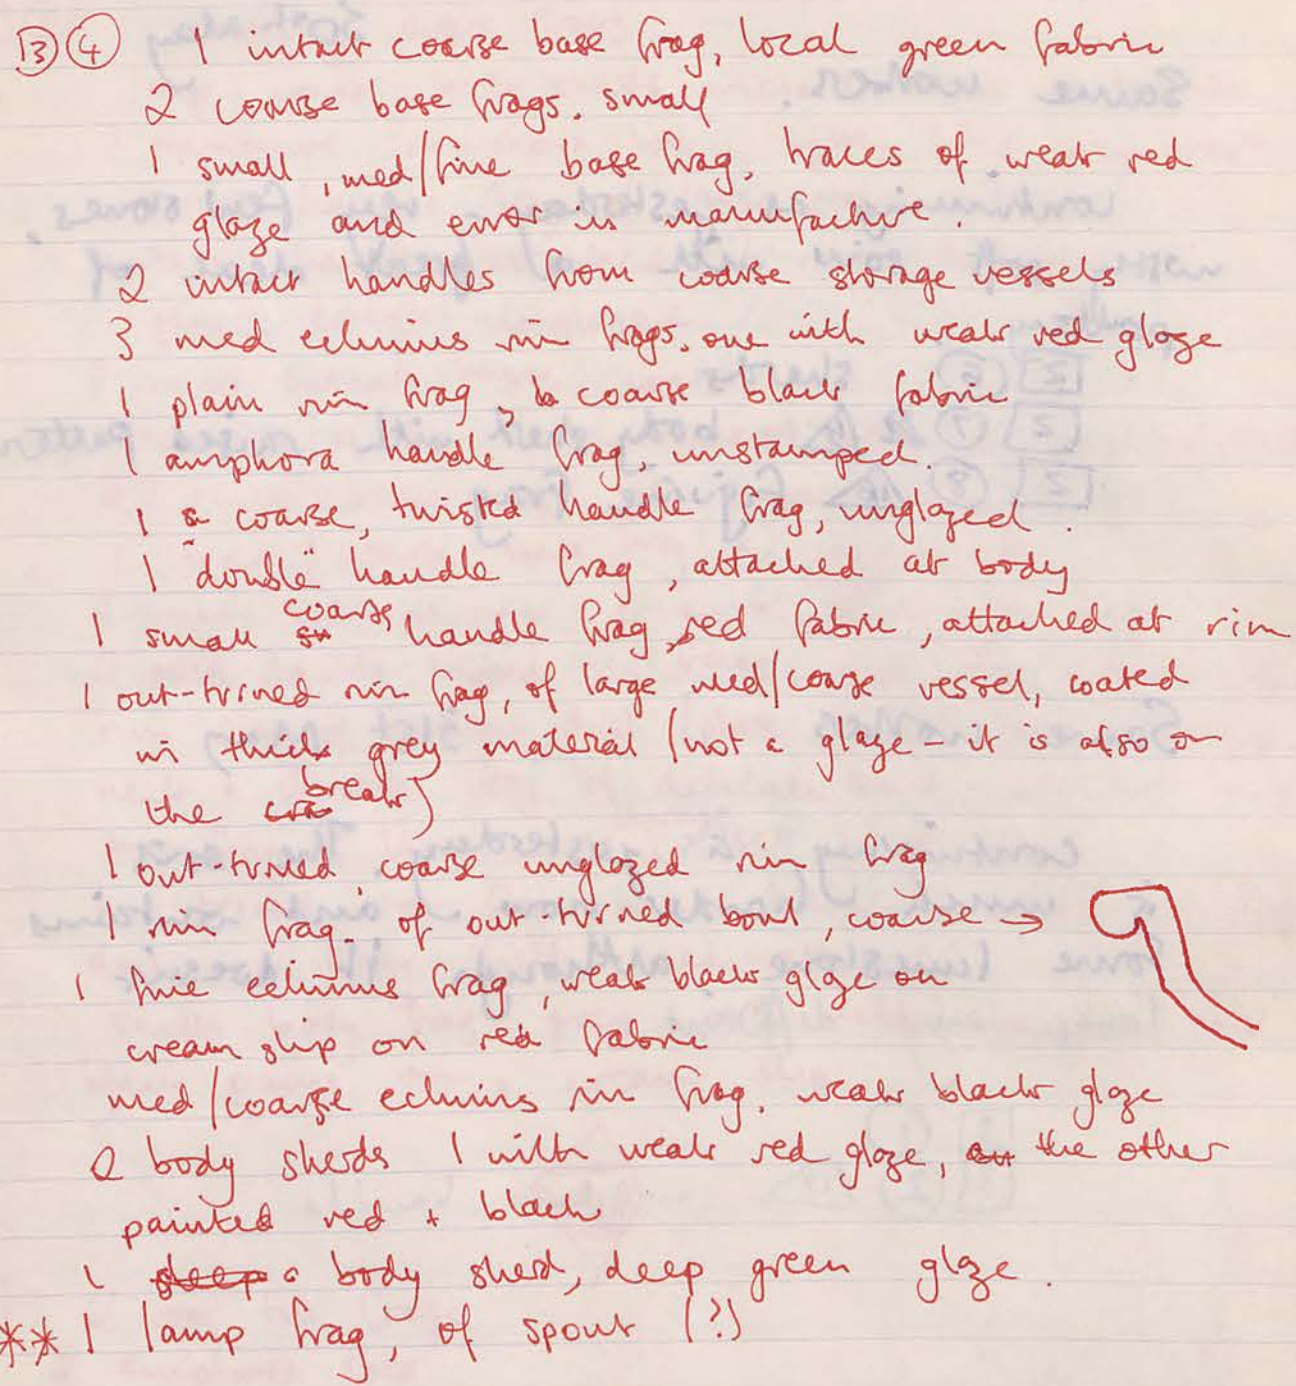 B ④ 1 intact coarse base frag, local green fabric
2 coarse base frags. small
1 small, med/fine base frag, traces of weak red
glaze and error in manufacture.
2 intact handles from coarse storage vessels
3 med echinus rim frags, one with weak red glaze
1 plain rim frag, coarse black fabric
1 amphora handle frag, unstamped.
1 coarse, twisted handle frag, unglazed.
1 "double" handle frag, attached at body
1 small coarse, handle frag, red fabric, attached at rim
1 out-turned rim frag, of large med/coarse vessel, coated
in thick grey material (not a glaze - it is also on
the break)
1 out-turned, coarse unglazed rim frag
1 rim frag. of out-turned bowl, coarse →
1 fine echinus frag, weak black glaze on
cream slip on red fabric
med/coarse echinus rim frag, weak black glaze
2 body sherds 1 with weak red glaze, the other
painted red + black
1 body sherd, deep green glaze.
** 1 lamp frag, of spout (?)